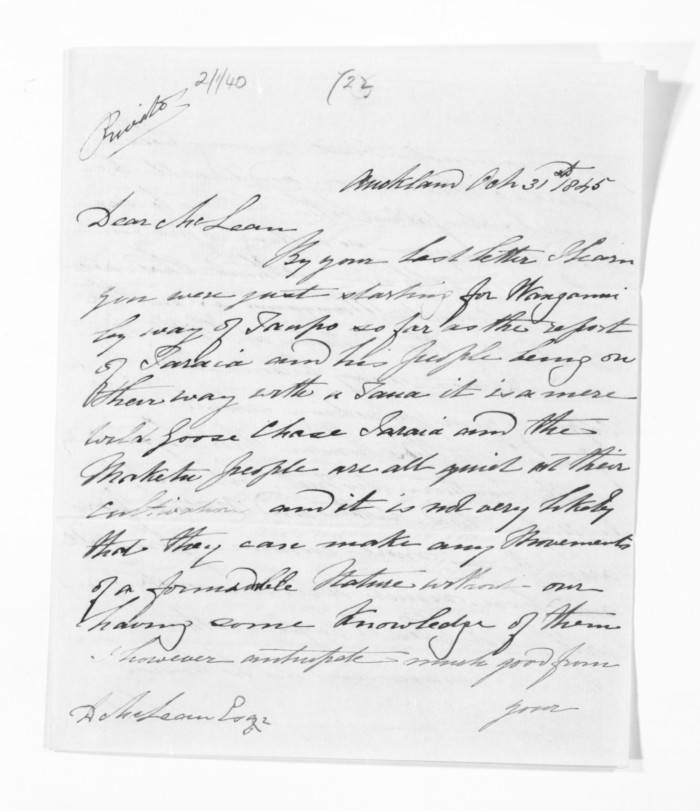 21/1/40 (22)
Private
Auckland Oct 31st 1845
Dear McLean
By your last letter I learn
you were just starting for Wanganui
by way of Taupo so far as the report
of Taraia and his people being on
their way with a Taua it is a mere
wild Goose Chase Taraia and the
Maketu people are all quiet at their
cultivations and it is not very likely
that they can make any Movements
of a formadable Nature without our
having some Knowledge of them
however anticipate much good from
your
D McLean Esqr